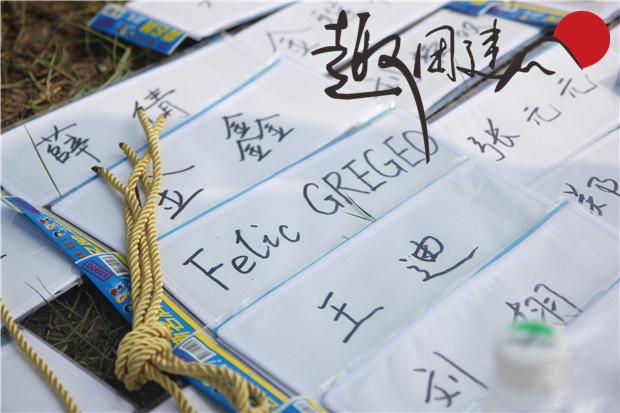 趣团建
薛倩
金鑫
张元元
Felic GREGEO
郑
王迪
刘